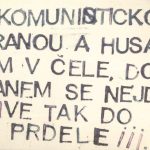 KOMUNISTICKO
RANOU A HUSA
M V ČELE, DO
ANEM SE NEJD
IVE TAK DO
PRDELE !!!.